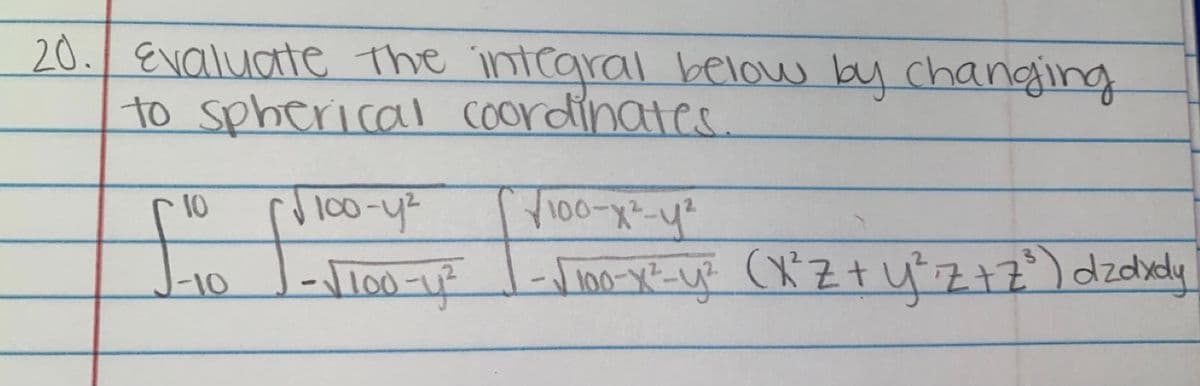 20. Evaluate the integral below by changing
to spherical coordinates.
∫_{-10}^{10} ∫_{-√(100-y²)}^{√(100-y²)} ∫_{-√(100-x²-y²)}^{√(100-x²-y²)} (x²z+y²z+z³) dzdxdy